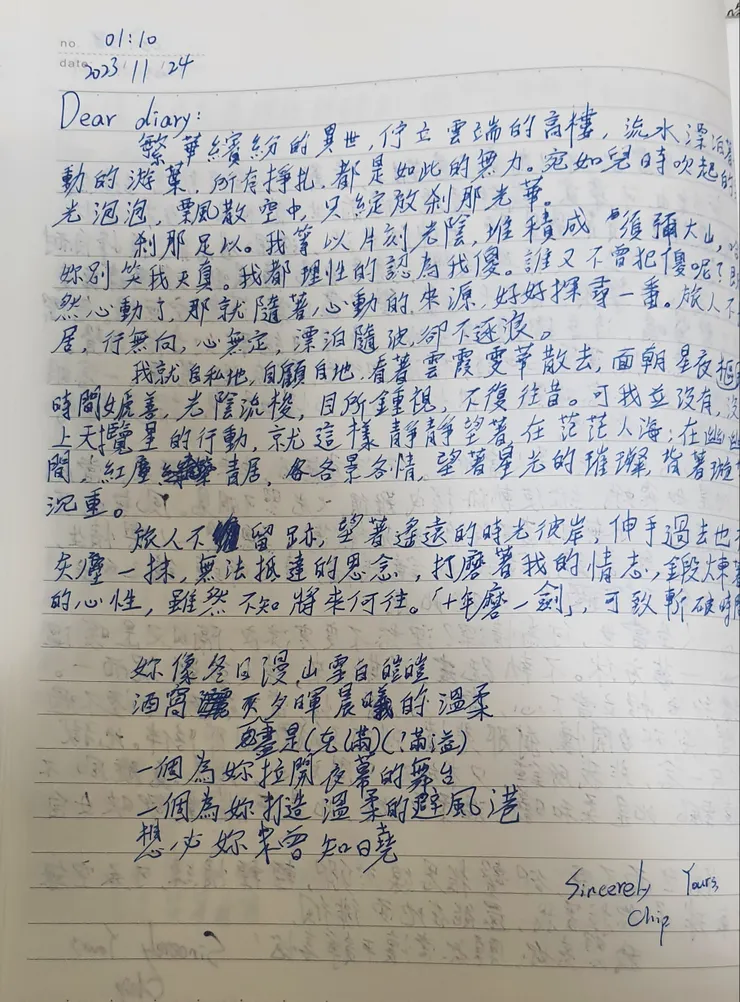 no 01:10
date 2023/11/24
Dear diary:
繁華繽紛的異世,佇立雲端的高樓,流水漂泊著
動的游葉,所有掙扎,都是如此的無力。宛如兒時吹起的
光泡泡,栗風散空中,只綻放剎那光華。
剎那足以。我等以片刻光陰,堆積成須彌大山,
妳別笑我天真。我都理性的認為我傻。誰又不曾犯傻呢?既
然心動了,那就隨著心動的來源,好好探尋一番。旅人不
居,行無向,心無定,漂泊隨波,卻不逐浪。
我就自私地,自顧自地,看著雲霞雯華散去,面朝星夜
時間,光陰流梭,目所鍾視,不復往昔。可我並沒有,沒
上天攬星的行動,就這樣靜靜望著,在茫茫人海;在幽幽
間,紅塵青居,各各景各情,望著星光的璀璨,背著
沉重。
旅人不留跡,望著遙遠的時光彼岸,伸手過去也
灰塵一抹,無法抵達的思念,打磨著我的情志,鍛煉著
的心性,雖然不知將來何往。「十年磨一劍」,可致斬破時
妳像冬日漫山雪白皚皚
酒窩 夕暉晨曦的溫柔
盡是(充滿)(滿溢)
一個為妳拉開夜幕的舞台
一個為妳打造溫柔的避風港
想必妳未曾知曉
Sincerely Yours,
Chip